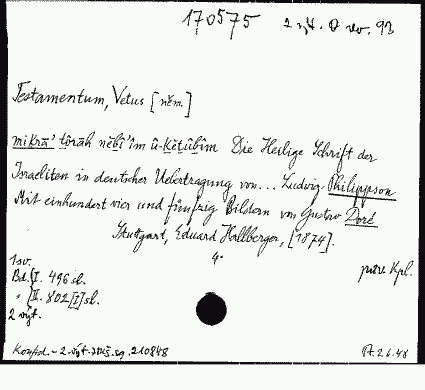 170575 2 výt. D rev. 93
Testamentum, Vetus [něm.]
mikrā' tōrāh něbī'īm û-kětûbīm Die Heilige Schrift der
Israeliten in deutscher Uebertragung von... Ludwig Philippson
Mit einhundert vier und fünfzig Bildern von Gustav Doré
Stuttgart, Eduard Hallberger, [1874].
1 sv. 4°
Bd. [I. 496 sl.
" [II. 802 [I] sl.
2 výt.
Konfed. - 2. výt. sg. 210848